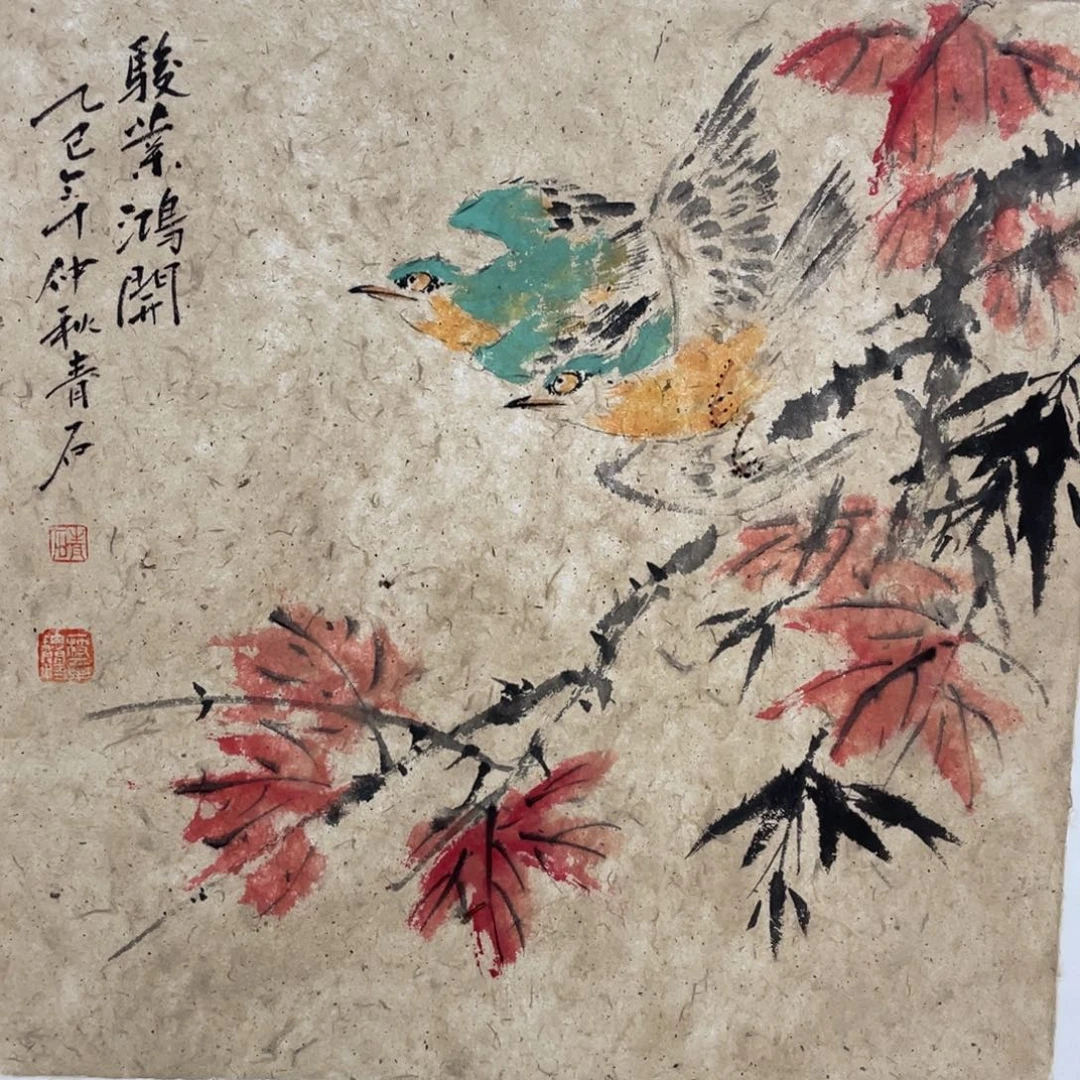 駿業鴻開
乙巳年仲秋青石
青石